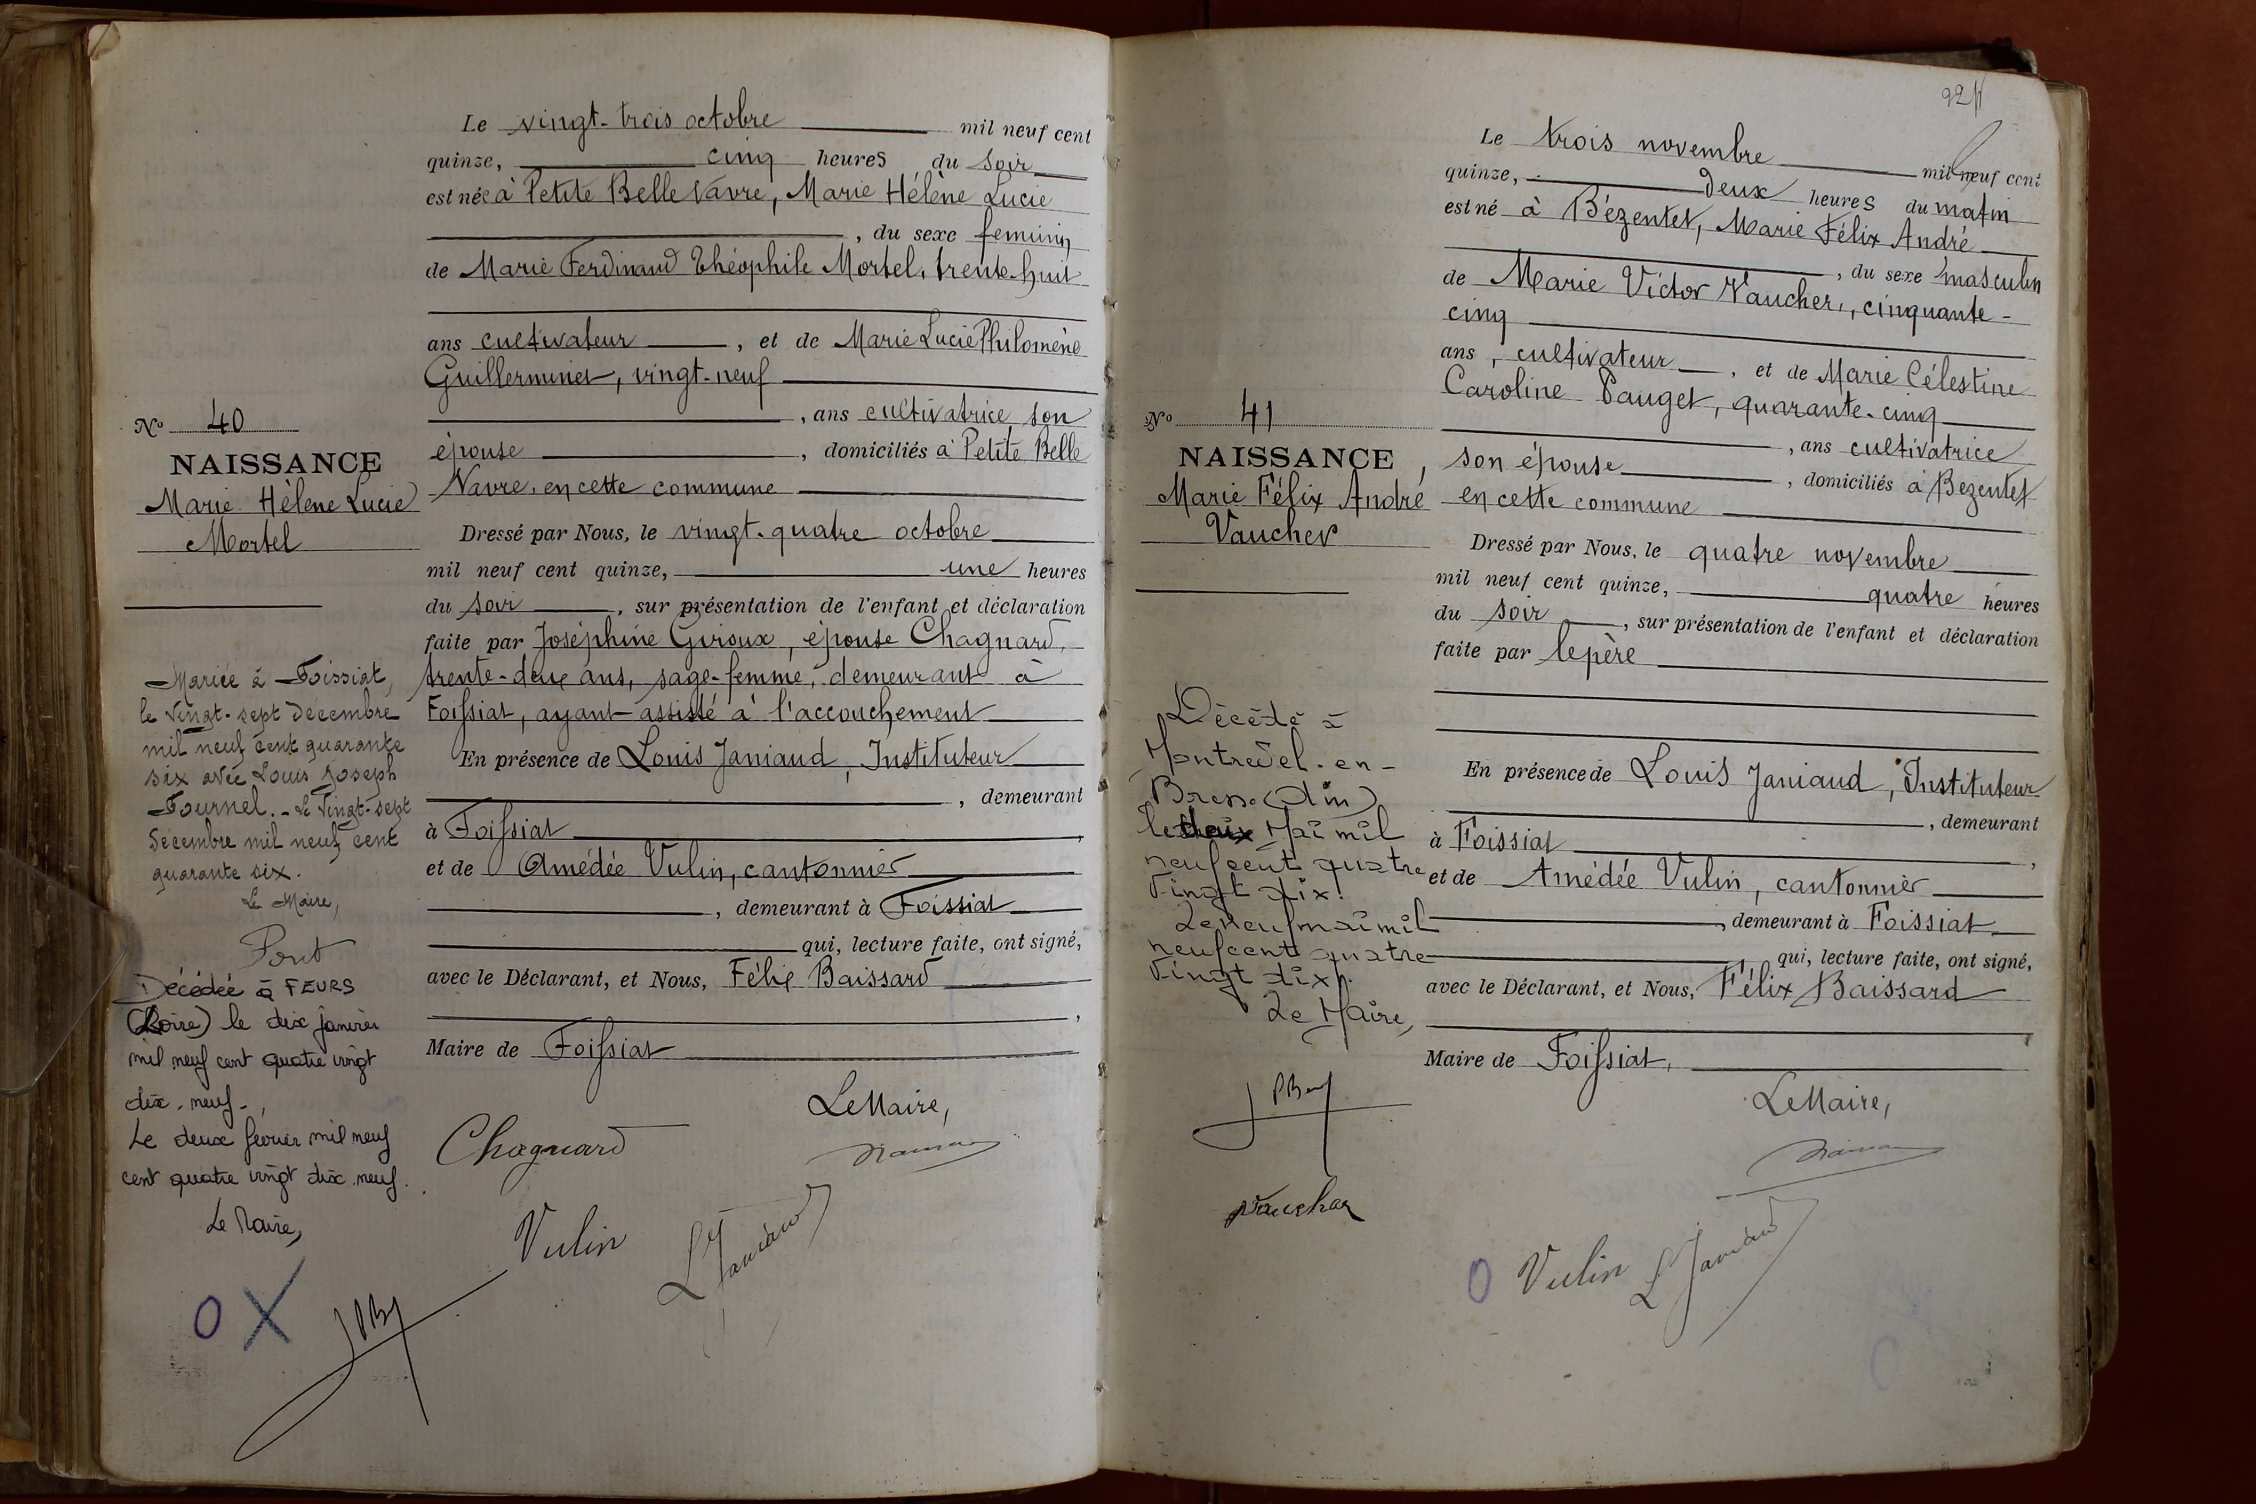 Le vingt-trois octobre mil neuf cent
quinze, cinq heures du soir
est née à Petite Belle Navre, Marie Hélène Lucie
, du sexe féminin
de Marie Ferdinand Théophile Mortel, trente-huit
ans cultivateur , et de Marie Lucie Philomène
Guillerminet, vingt-neuf
, ans cultivatrice, son
épouse , domiciliés à Petite Belle
Navre, en cette commune
Dressé par Nous, le vingt-quatre octobre
mil neuf cent quinze, une heures
du soir , sur présentation de l'enfant et déclaration
faite par Joséphine Giroux, épouse Chagnard,
trente-deux ans, sage-femme, demeurant à
Foissiat, ayant assisté à l'accouchement
En présence de Louis Janiaud, Instituteur
, demeurant
à Foissiat ,
et de Amédée Vulin, cantonnier
, demeurant à Foissiat
qui, lecture faite, ont signé,
avec le Déclarant, et Nous, Félix Baissard
,
Maire de Foissiat
Le Maire,
Chagnard
Vulin
L Janiaud
No 40
NAISSANCE
Marie Hélène Lucie
Mortel
Mariée à Foissiat,
le vingt-sept décembre
mil neuf cent quarante
six avec Louis Joseph
Fournel. - Le vingt-sept
décembre mil neuf cent
quarante six.
Le Maire,
Pont
Décédée à FEURS
(Loire) le dix janvier
mil neuf cent quatre vingt
dix-neuf.
Le deux février mil neuf
cent quatre vingt dix neuf.
Le Maire,
O X
224
Le trois novembre mil neuf cent
quinze, deux heures du matin
est né à Bézentet, Marie Félix André
, du sexe masculin
de Marie Victor Vaucher, cinquante-
cinq
ans, cultivateur , et de Marie Célestine
Caroline Pauget, quarante-cinq
, ans cultivatrice
son épouse , domiciliés à Bezentet
en cette commune
Dressé par Nous, le quatre novembre
mil neuf cent quinze, quatre heures
du soir , sur présentation de l'enfant et déclaration
faite par le père
En présence de Louis Janiaud, Instituteur
, demeurant
à Foissiat ,
et de Amédée Vulin, cantonnier
, demeurant à Foissiat
, qui, lecture faite, ont signé,
avec le Déclarant, et Nous, Félix Baissard
,
Maire de Foissiat,
Le Maire,
O Vulin L Janiaud
No 41
NAISSANCE,
Marie Félix André
Vaucher
Décédé à
Montrevel-en-
Bresse (Ain)
le deux Mai mil
neuf cent quatre
vingt dix.
Le neuf mai mil
neuf cent quatre
vingt dix.
Le Maire,
Vaucher